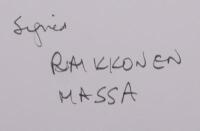 Signed
RAIKKONEN
MASSA